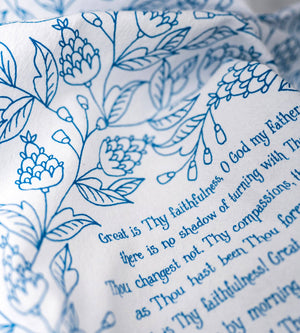 Great is Thy faithfulness, O God my Father
there is no shadow of turning with Th
Thou changest not, Thy compassions, th
as Thou hast been Thou fore
is Thy faithfulness! Great
morning